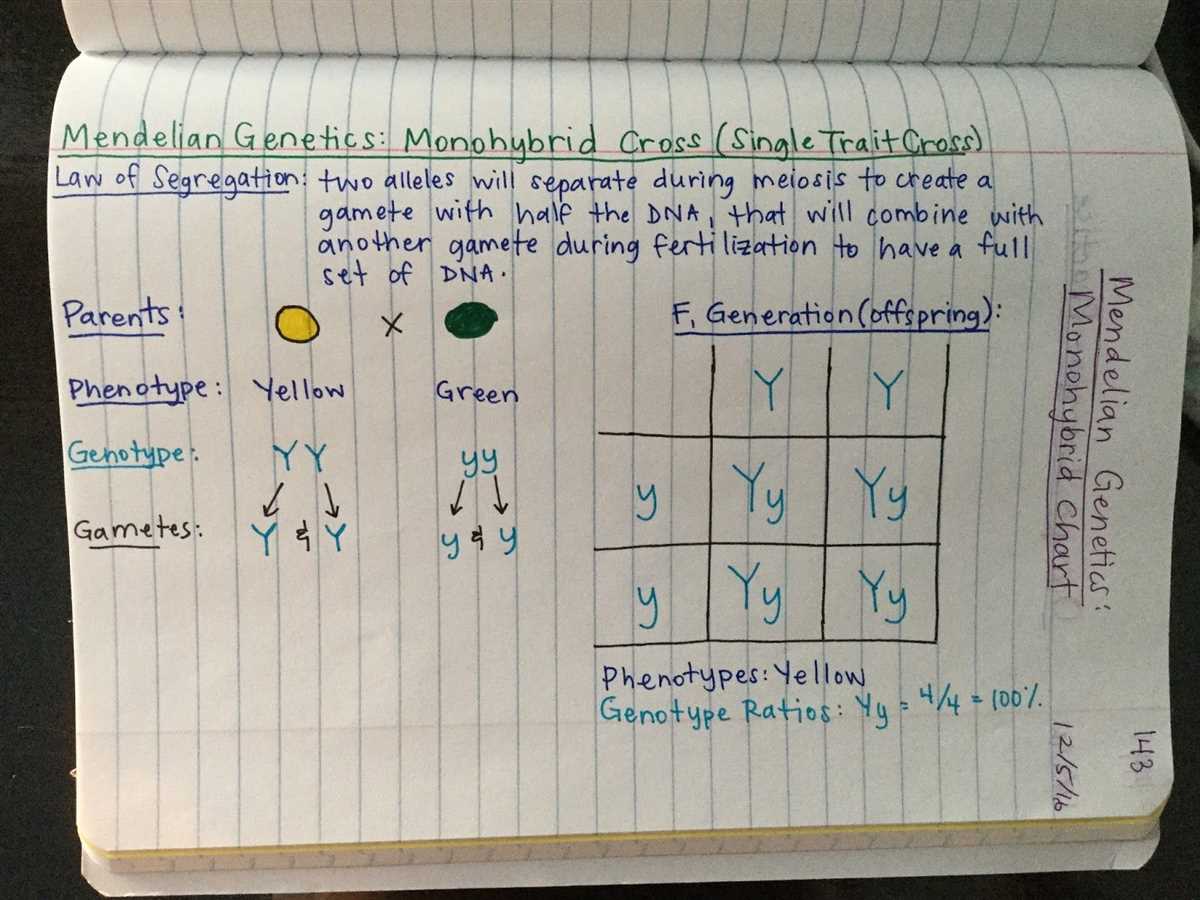 Mendelian Genetics: Monohybrid Cross (Single Trait Cross)
Law of Segregation: two alleles will separate during meiosis to create a
gamete with half the DNA, that will combine with
another gamete during fertilization to have a full
set of DNA.
Parents: X
Phenotype: Yellow Green
Genotype: YY yy
Gametes: Y & Y y & y
F1 Generation (offspring):
Y Y
y Yy Yy
y Yy Yy
Phenotypes: Yellow
Genotype Ratios: Yy = 4/4 = 100%.
Mendelian Genetics:
Monohybrid Chart
143
12/5/16